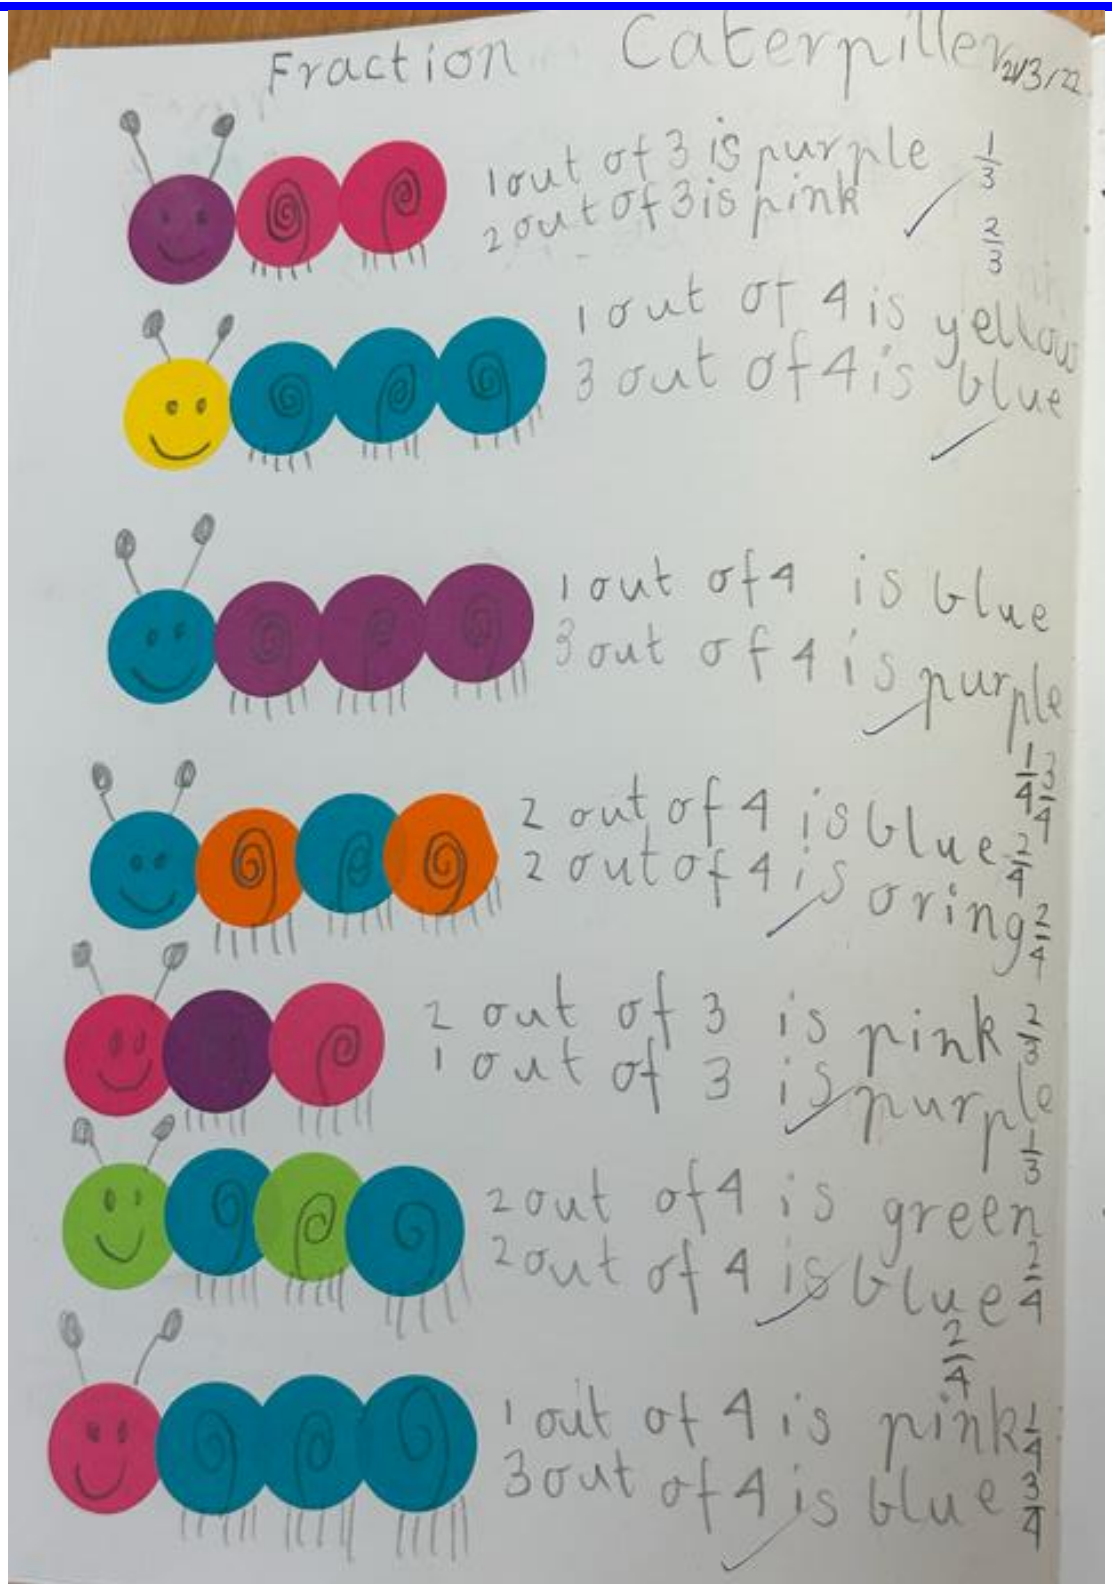 Fraction Caterpiller
21/3/22
1 out of 3 is purple 1/3
2 out of 3 is pink 2/3
1 out of 4 is yellow
3 out of 4 is blue
1 out of 4 is blue
3 out of 4 is purple
1/4 3/4
2 out of 4 is blue 2/4
2 out of 4 is oring 2/4
2 out of 3 is pink 2/3
1 out of 3 is purple
1/3
2 out of 4 is green
2 out of 4 is blue 2/4
2/4
1 out of 4 is pink 1/4
3 out of 4 is blue 3/4